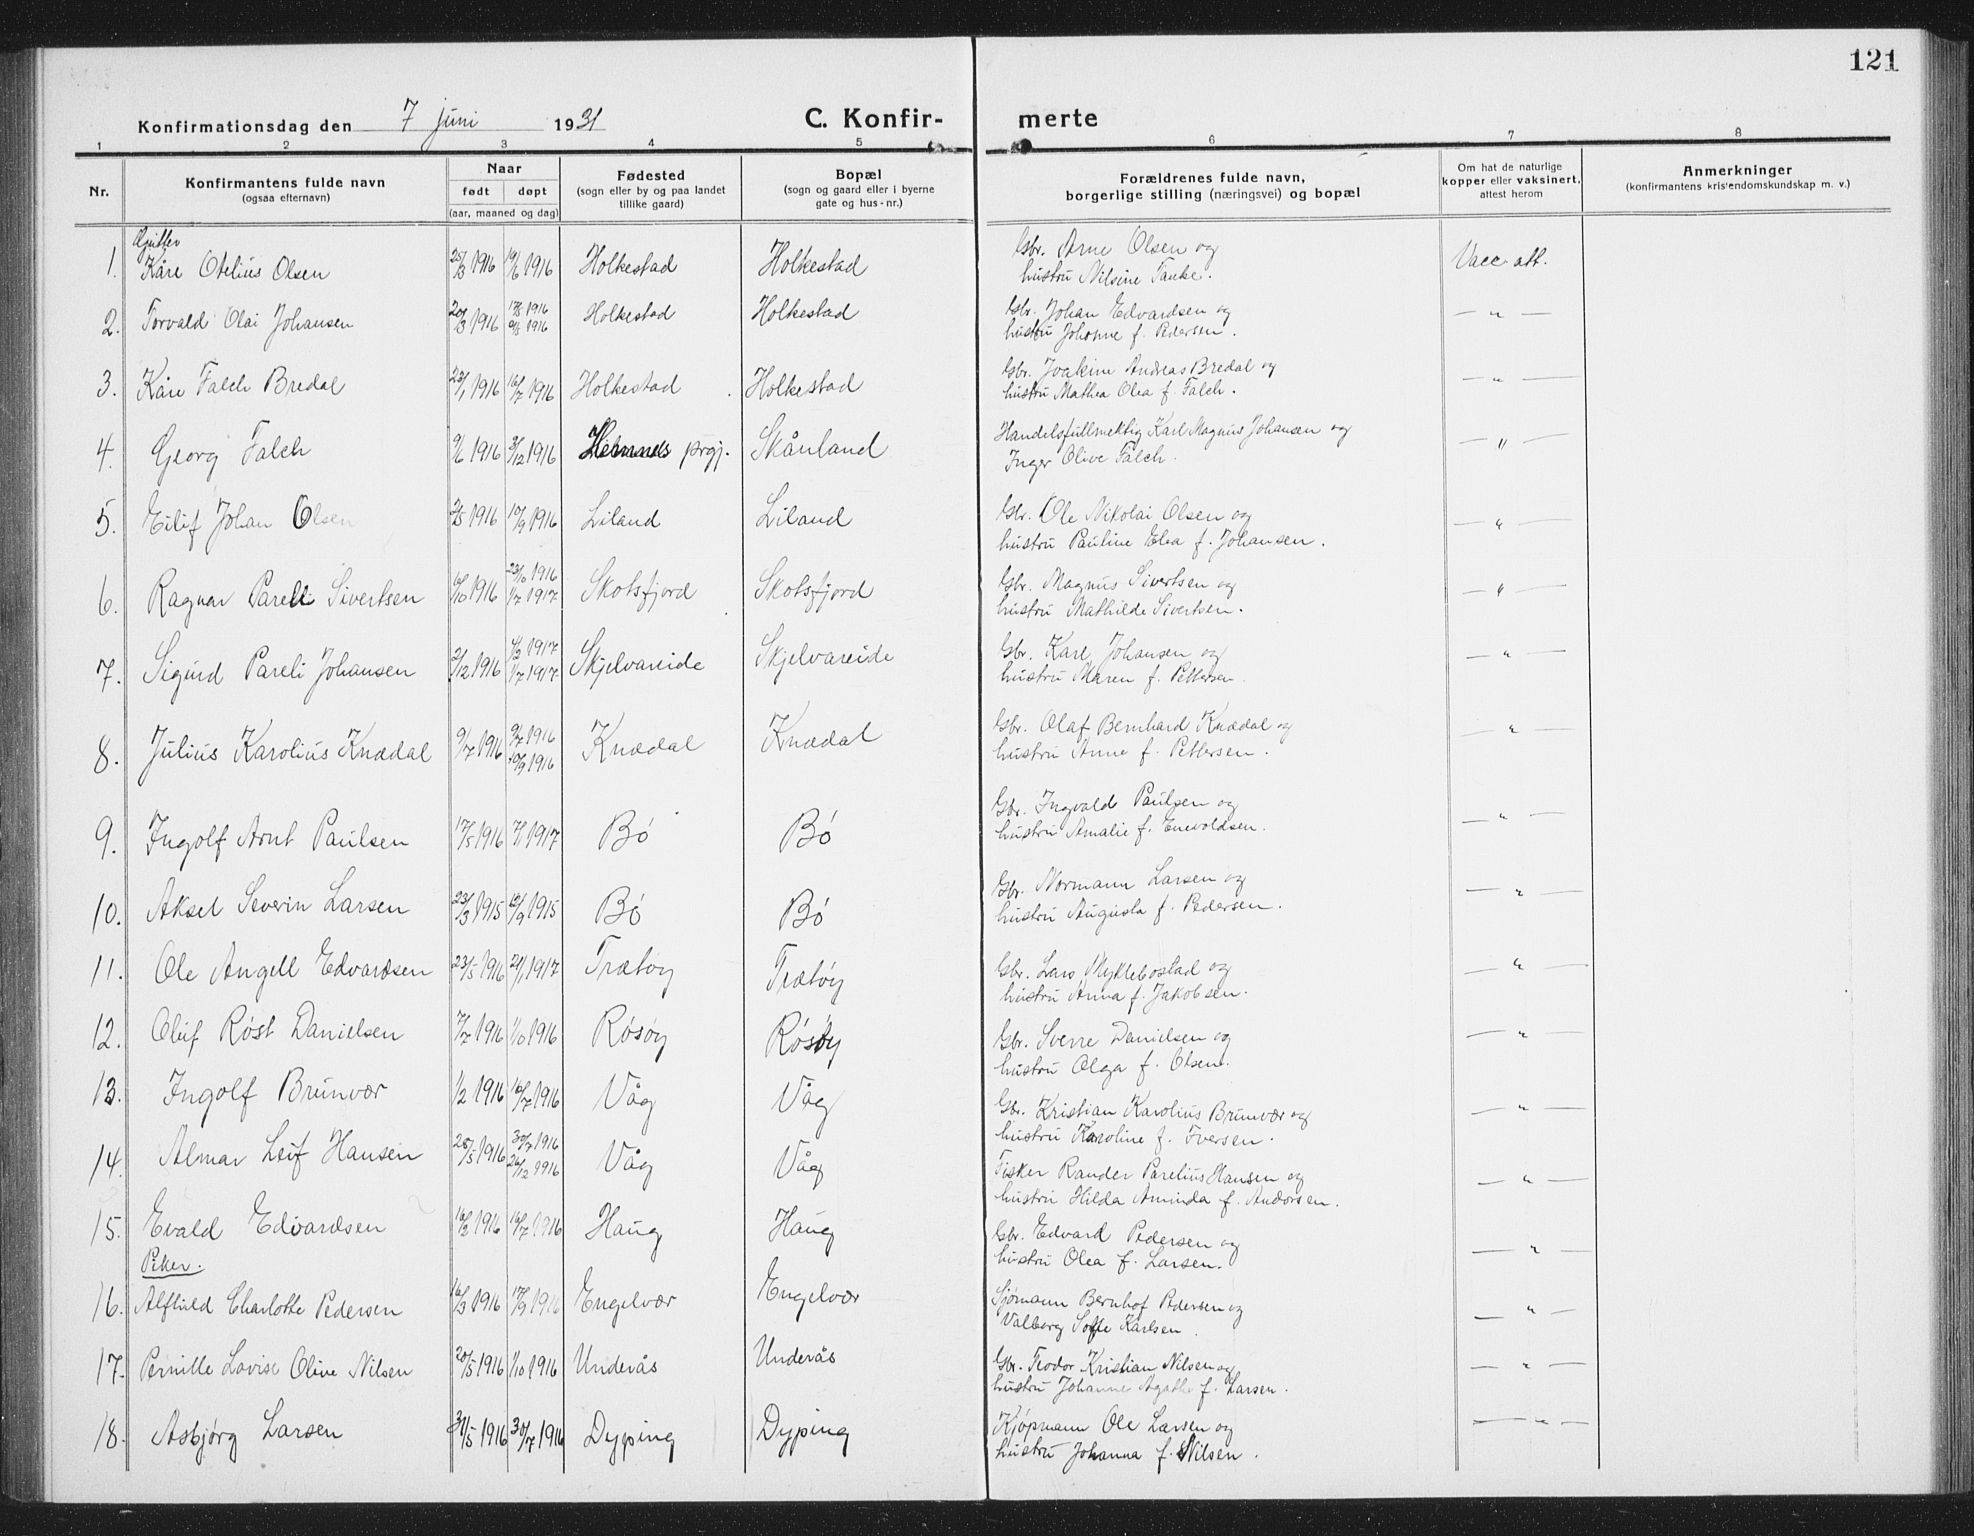 121
Konfirmationsdag den 7 juni 1931 C. Konfir- merte
1 2 3 4 5 6 7 8
Nr. Konfirmantens fulde navn (ogsaa efternavn) Naar født døpt (aar, maaned og dag) Fødested (sogn eller by og paa landet tillike gaard) Bopæl (sogn og gaard eller i byerne gate og hus-nr.) Forældrenes fulde navn, borgerlige stilling (næringsvei) og bopæl Om hat de naturlige kopper eller vaksinert, attest herom Anmerkninger (konfirmantens kristendomskundskap m. v.)
Gutter
1. Kåre Otelius Olsen 25/3 1916 1916 Holkestad Holkestad Gbr. Arne Olsen og
hustru Nilsine Tanke. Vacc. att.
2. Torvald Olai Johansen 20/3 1916 1916 1916 Holkestad Holkestad Gbr. Johan Edvardsen og
hustru Johanne f. Pedersen. — " —
3. Kåre Falch Bredal 23/1 1916 16/7 1916 Holkestad Holkestad Gbr. Joakim Andreas Bredal og
hustru Mathea Olea f. Falch. — " —
4. Georg Falch 9/6 1916 3/12 1916 Hemnes prgj. Skånland Handelsfullmektig Karl Magnus Johansen og
Inger Olive Falch. — " —
5. Eilif Johan Olsen 2/5 1916 17/9 1916 Liland Liland Gbr. Ole Nikolai Olsen og
hustru Pauline Elea f. Johansen. — " —
6. Ragnar Pareli Sivertsen 16/10 1916 23/10 1916 1/7 1917 Skotsfjord Skotsfjord Gbr. Magnus Sivertsen og
hustru Mathilde Sivertsen. — " —
7. Sigurd Pareli Johansen 2/12 1916 4/2 1917 1/7 1917 Skjelvareide Skjelvareide Gbr. Karl Johansen og
hustru Maren f. Pettersen. — " —
8. Julius Karolius Knædal 9/7 1916 9/7 1916 10/9 1916 Knædal Knædal Gbr. Olaf Bernhard Knædal og
hustru Anne f. Pettersen. — " —
9. Ingolf Arnt Paulsen 17/5 1916 7/1 1917 Bø Bø Gbr. Ingvald Paulsen og
hustru Amalie f. Enevoldsen. — " —
10. Aksel Severin Larsen 23/3 1915 12/9 1915 Bø Bø Gbr. Normann Larsen og
hustru Augusta f. Pedersen. — " —
11. Ole Angell Edvardsen 23/5 1916 21/1 1917 Trætøy Trætøy Gbr. Lars Myklebostad og
hustru Anna f. Jakobsen. — " —
12. Oluf Røst Danielsen 7/7 1916 1/10 1916 Røsøy Røsøy Gbr. Sverre Danielsen og
hustru Olga f. Olsen. — " —
13. Ingolf Brunvær 1/2 1916 16/7 1916 Våg Våg Gbr. Kristian Karolius Brunvær og
hustru Karoline f. Iversen. — " —
14. Almar Leif Hansen 28/5 1916 30/7 1916 26/12 1916 Våg Våg Fisker Rander Parelius Hansen og
hustru Hilda Aminda f. Andorsen. — " —
15. Evald Edvardsen 16/2 1916 16/7 1916 Haug Haug Gbr. Edvard Pedersen og
hustru Olea f. Larsen. — " —
Piker.
16. Alfhild Charlotte Pedersen 16/3 1916 17/9 1916 Engelvær Engelvær Sjømann Bernhof Pedersen og
Valborg Sofie Karlsen. — " —
17. Pernille Lovise Olive Nilsen 20/5 1916 1/10 1916 Underås Underås Gbr. Teodor Kristian Nilsen og
hustru Johanne Agathe f. Larsen. — " —
18. Asbjørg Larsen 31/5 1916 30/7 1916 Dyping Dyping Kjøpmann Ole Larsen og
hustru Johanna f. Nilsen. — " —